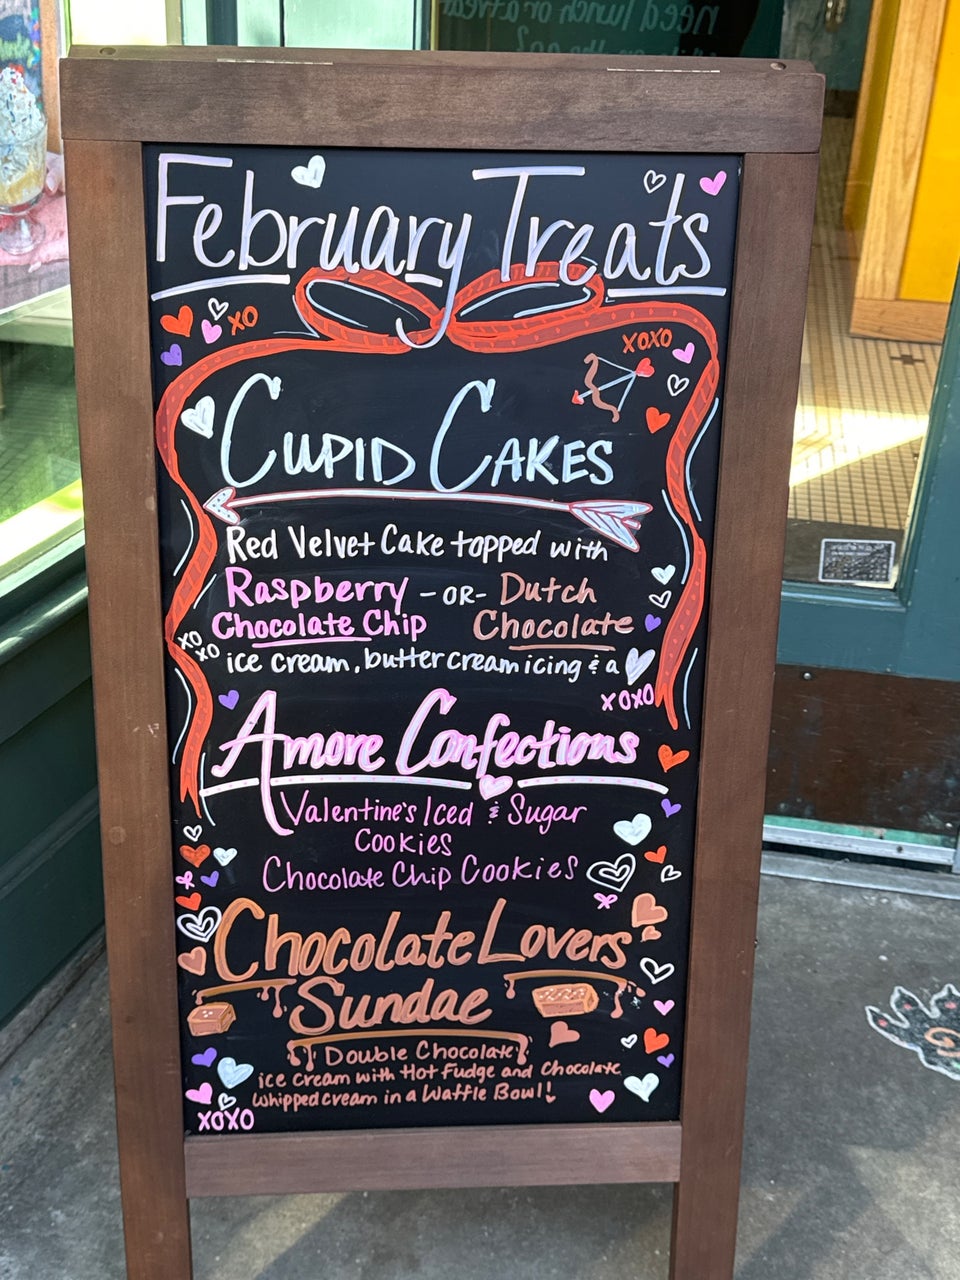 need lunch or a treat
February Treats
XO
XOXO
CUPID CAKES
Red Velvet Cake topped with
Raspberry -OR- Dutch
Chocolate Chip Chocolate
XO
XO
ice cream, buttercream icing & a
XOXO
Amore Confections
Valentine's Iced & Sugar
Cookies
Chocolate Chip Cookies
Chocolate Lovers
Sundae
Double Chocolate
ice cream with Hot Fudge and Chocolate
whipped cream in a Waffle Bowl!
XOXO